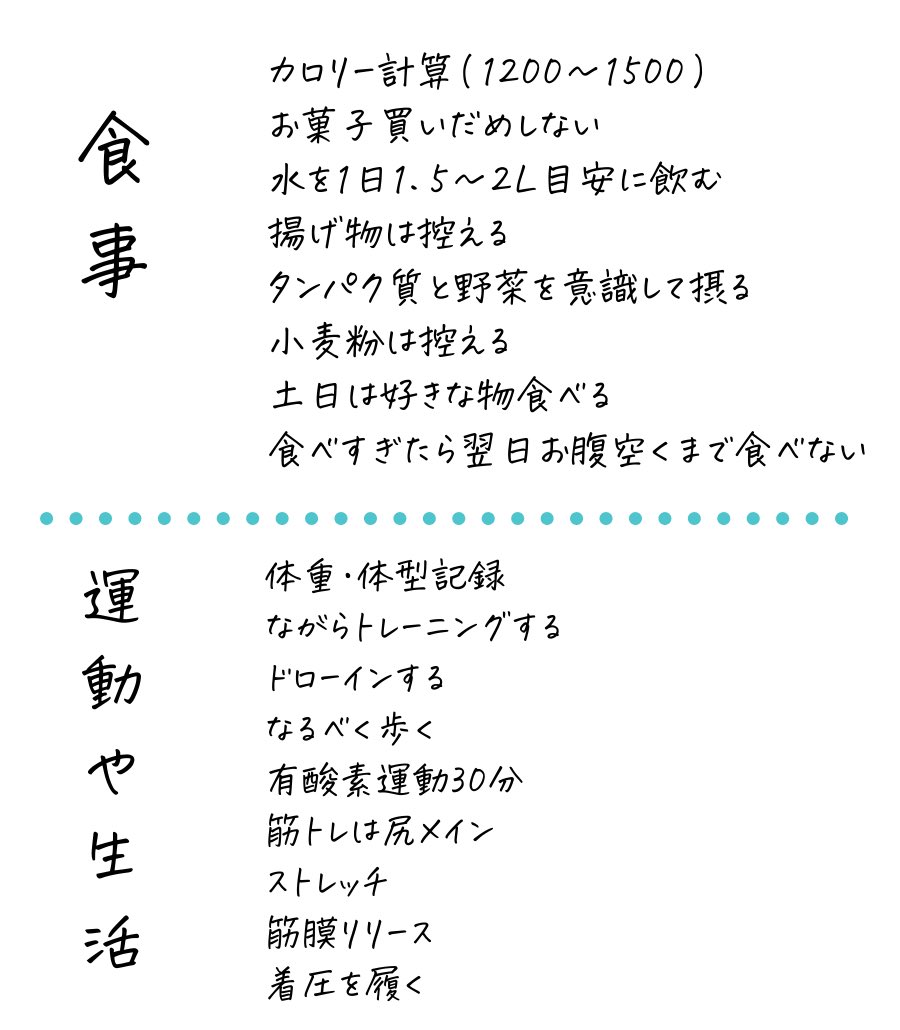 食事
カロリー計算(1200～1500)
お菓子買いだめしない
水を1日1.5～2L目安に飲む
揚げ物は控える
タンパク質と野菜を意識して摂る
小麦粉は控える
土日は好きな物食べる
食べすぎたら翌日お腹空くまで食べない
運動や生活
体重・体型記録
ながらトレーニングする
ドローインする
なるべく歩く
有酸素運動30分
筋トレは尻メイン
ストレッチ
筋膜リリース
着圧を履く